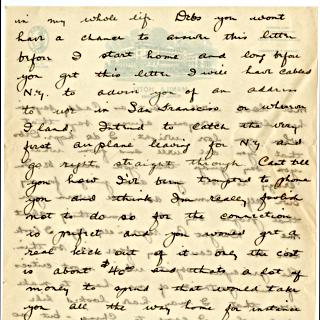 in my whole life. Debs you wont
have a chance to answer this letter
before I start home and long before
you get this letter I will have cabled
N.Y. to advise you of an address
to use in San Francisco or wherever
I land. Intend to catch the very
first airplane leaving for N.Y. and
go right straight through. Can't tell
you how I've been tempted to phone
you and think I'm really foolish
not to do so for the connection
is perfect and you would get a
real kick out of it only the cost
is about $40.00 and thats a lot of
money to spend, that would take
you all the way home for instance